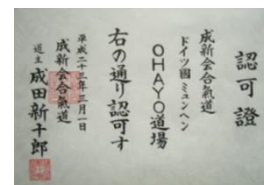 認可證
成新会合氣道
ドイツ國ミュンヘン
OHAYO道場
右の通り認可す
平成二十三年三月一日
成新会合氣道
道主 成田新十郎